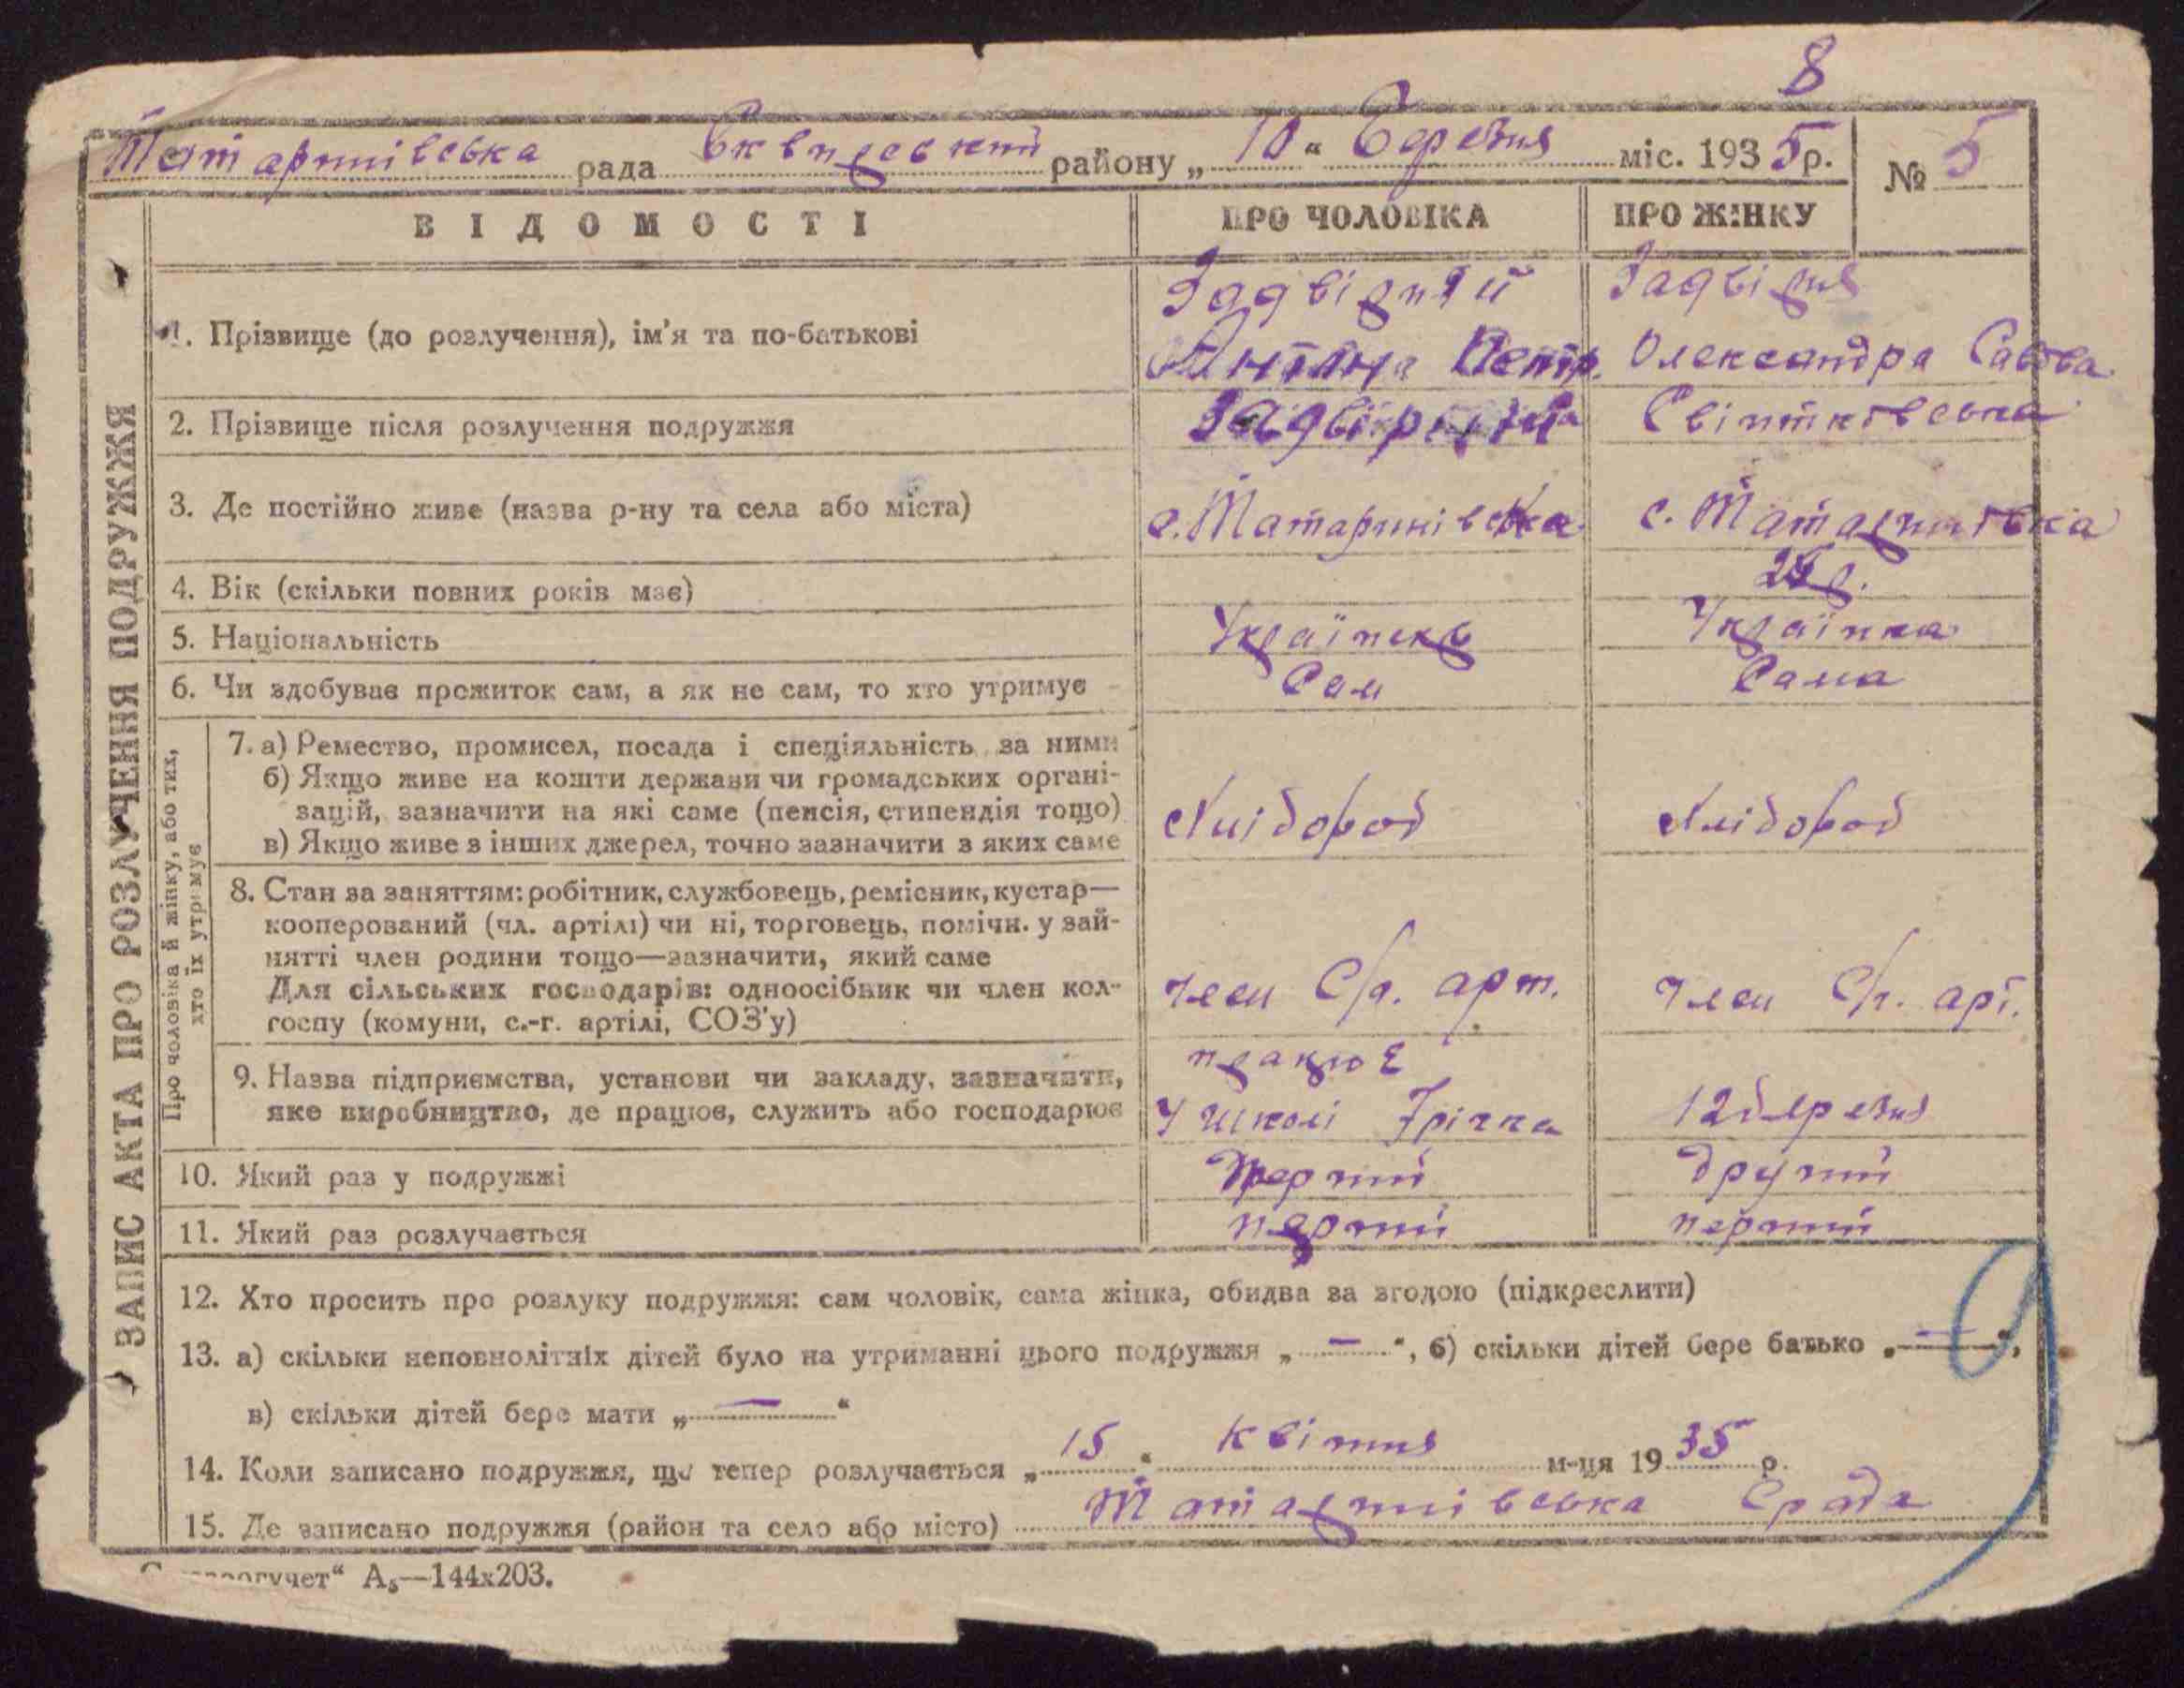 8
Татаринівська рада Сквирський району „10“ Березня міс. 1935 р. № 5
ВІДОМОСТІ ПРО ЧОЛОВІКА ПРО ЖІНКУ
ЗАПИС АКТА ПРО РОЗЛУЧЕННЯ ПОДРУЖЖЯ
Задвірній Задвірня
1. Прізвище (до розлучення), ім'я та по-батькові
Петр. Олександра Савова
2. Прізвище після розлучення подружжя
3. Де постійно живе (назва р-ну та села або міста) с. Татаринівка с. Татаринівка
4. Вік (скільки повних років має)
5. Національність Україн Українка
6. Чи здобуває прожиток сам, а як не сам, то хто утримує Сам Сама
Про чоловіка й жінку, або тих,
хто їх утримує
7. а) Ремество, промисел, посада і спеціяльність за ними
б) Якщо живе на кошти держави чи громадських органі-
зацій, зазначити на які саме (пенсія, стипендія тощо)
в) Якщо живе з інших джерел, точно зазначити з яких саме
Хлібороб Хлібороб
8. Стан за заняттям: робітник, службовець, ремісник, кустар—
кооперований (чл. артілі) чи ні, торговець, помічн. у зай-
нятті член родини тощо—зазначити, який саме
Для сільських господарів: одноосібник чи член кол-
госпу (комуни, с.-г. артілі, СОЗ'у)
Член С/г. арт. Член С/г. арт.
працює
9. Назва підприємства, установи чи закладу, зазначити,
яке виробництво, де працює, служить або господарює
У школі 12 березня
10. Який раз у подружжі Перший Другий
11. Який раз розлучається перший перший
12. Хто просить про розлуку подружжя: сам чоловік, сама жінка, обидва за згодою (підкреслити)
13. а) скільки неповнолітніх дітей було на утриманні цього подружжя „—“, б) скільки дітей бере батько „—“,
в) скільки дітей бере мати „—“
14. Коли записано подружжя, що тепер розлучається „15“ квітня м-ця 1935 р.
15. Де записано подружжя (район та село або місто) Татаринівська Срада
А₅—144х203.